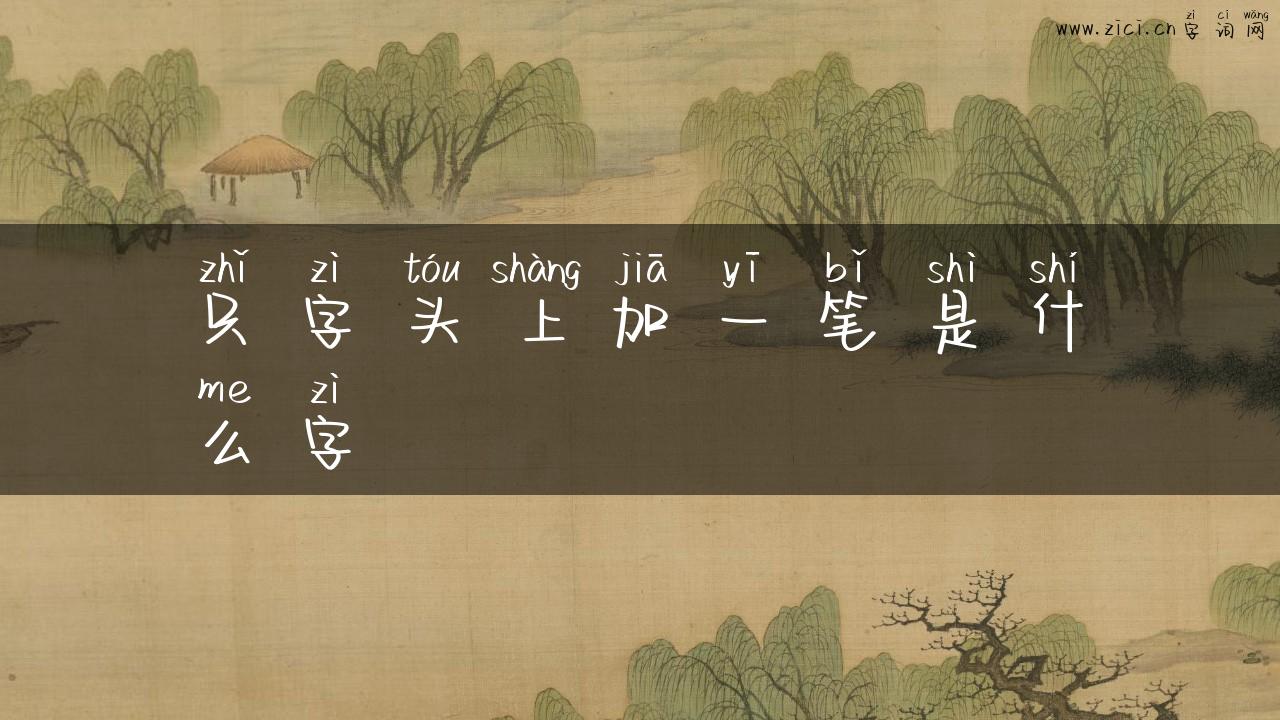 zì cí wǎng
www.zici.cn 字 词 网
zhǐ zì tóu shàng jiā yī bǐ shì shí
只 字 头 上 加 一 笔 是 什
me zì
么 字